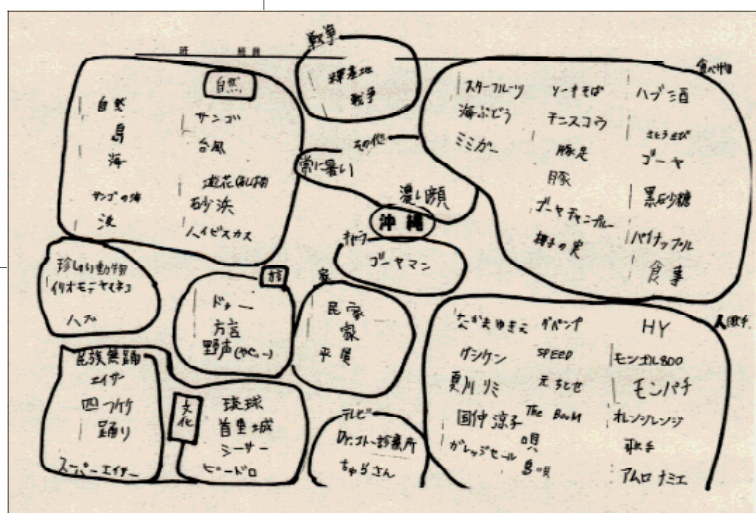 戦争
戦争
自然
自然
島
海
サンゴの海
浜
サンゴ
台風
砂浜
ハイビスカス
その他
常に暑い
濃い顔
沖縄
キャラ
ゴーヤマン
食べ物
スターフルーツ
海ぶどう
ミミガー
ソーキそば
チンスコウ
豚足
豚
ゴーヤチャンプルー
椰子の実
ハブ酒
さとうきび
ゴーヤ
黒砂糖
パイナップル
食事
珍しい動物
イリオモテヤマネコ
ハブ
方言
方言
家
民家
家
平屋
民族舞踊
エイサー
四つ竹
踊り
スーパーエイサー
文化
琉球
首里城
シーサー
ビードロ
テレビ
Dr.コトー診療所
ちゅらさん
夏川リミ
国仲涼子
ガレッジセール
SPEED
元ちとせ
The BooM
唄
島唄
HY
モンゴル800
モンパチ
オレンジレンジ
歌手
アムロナミエ